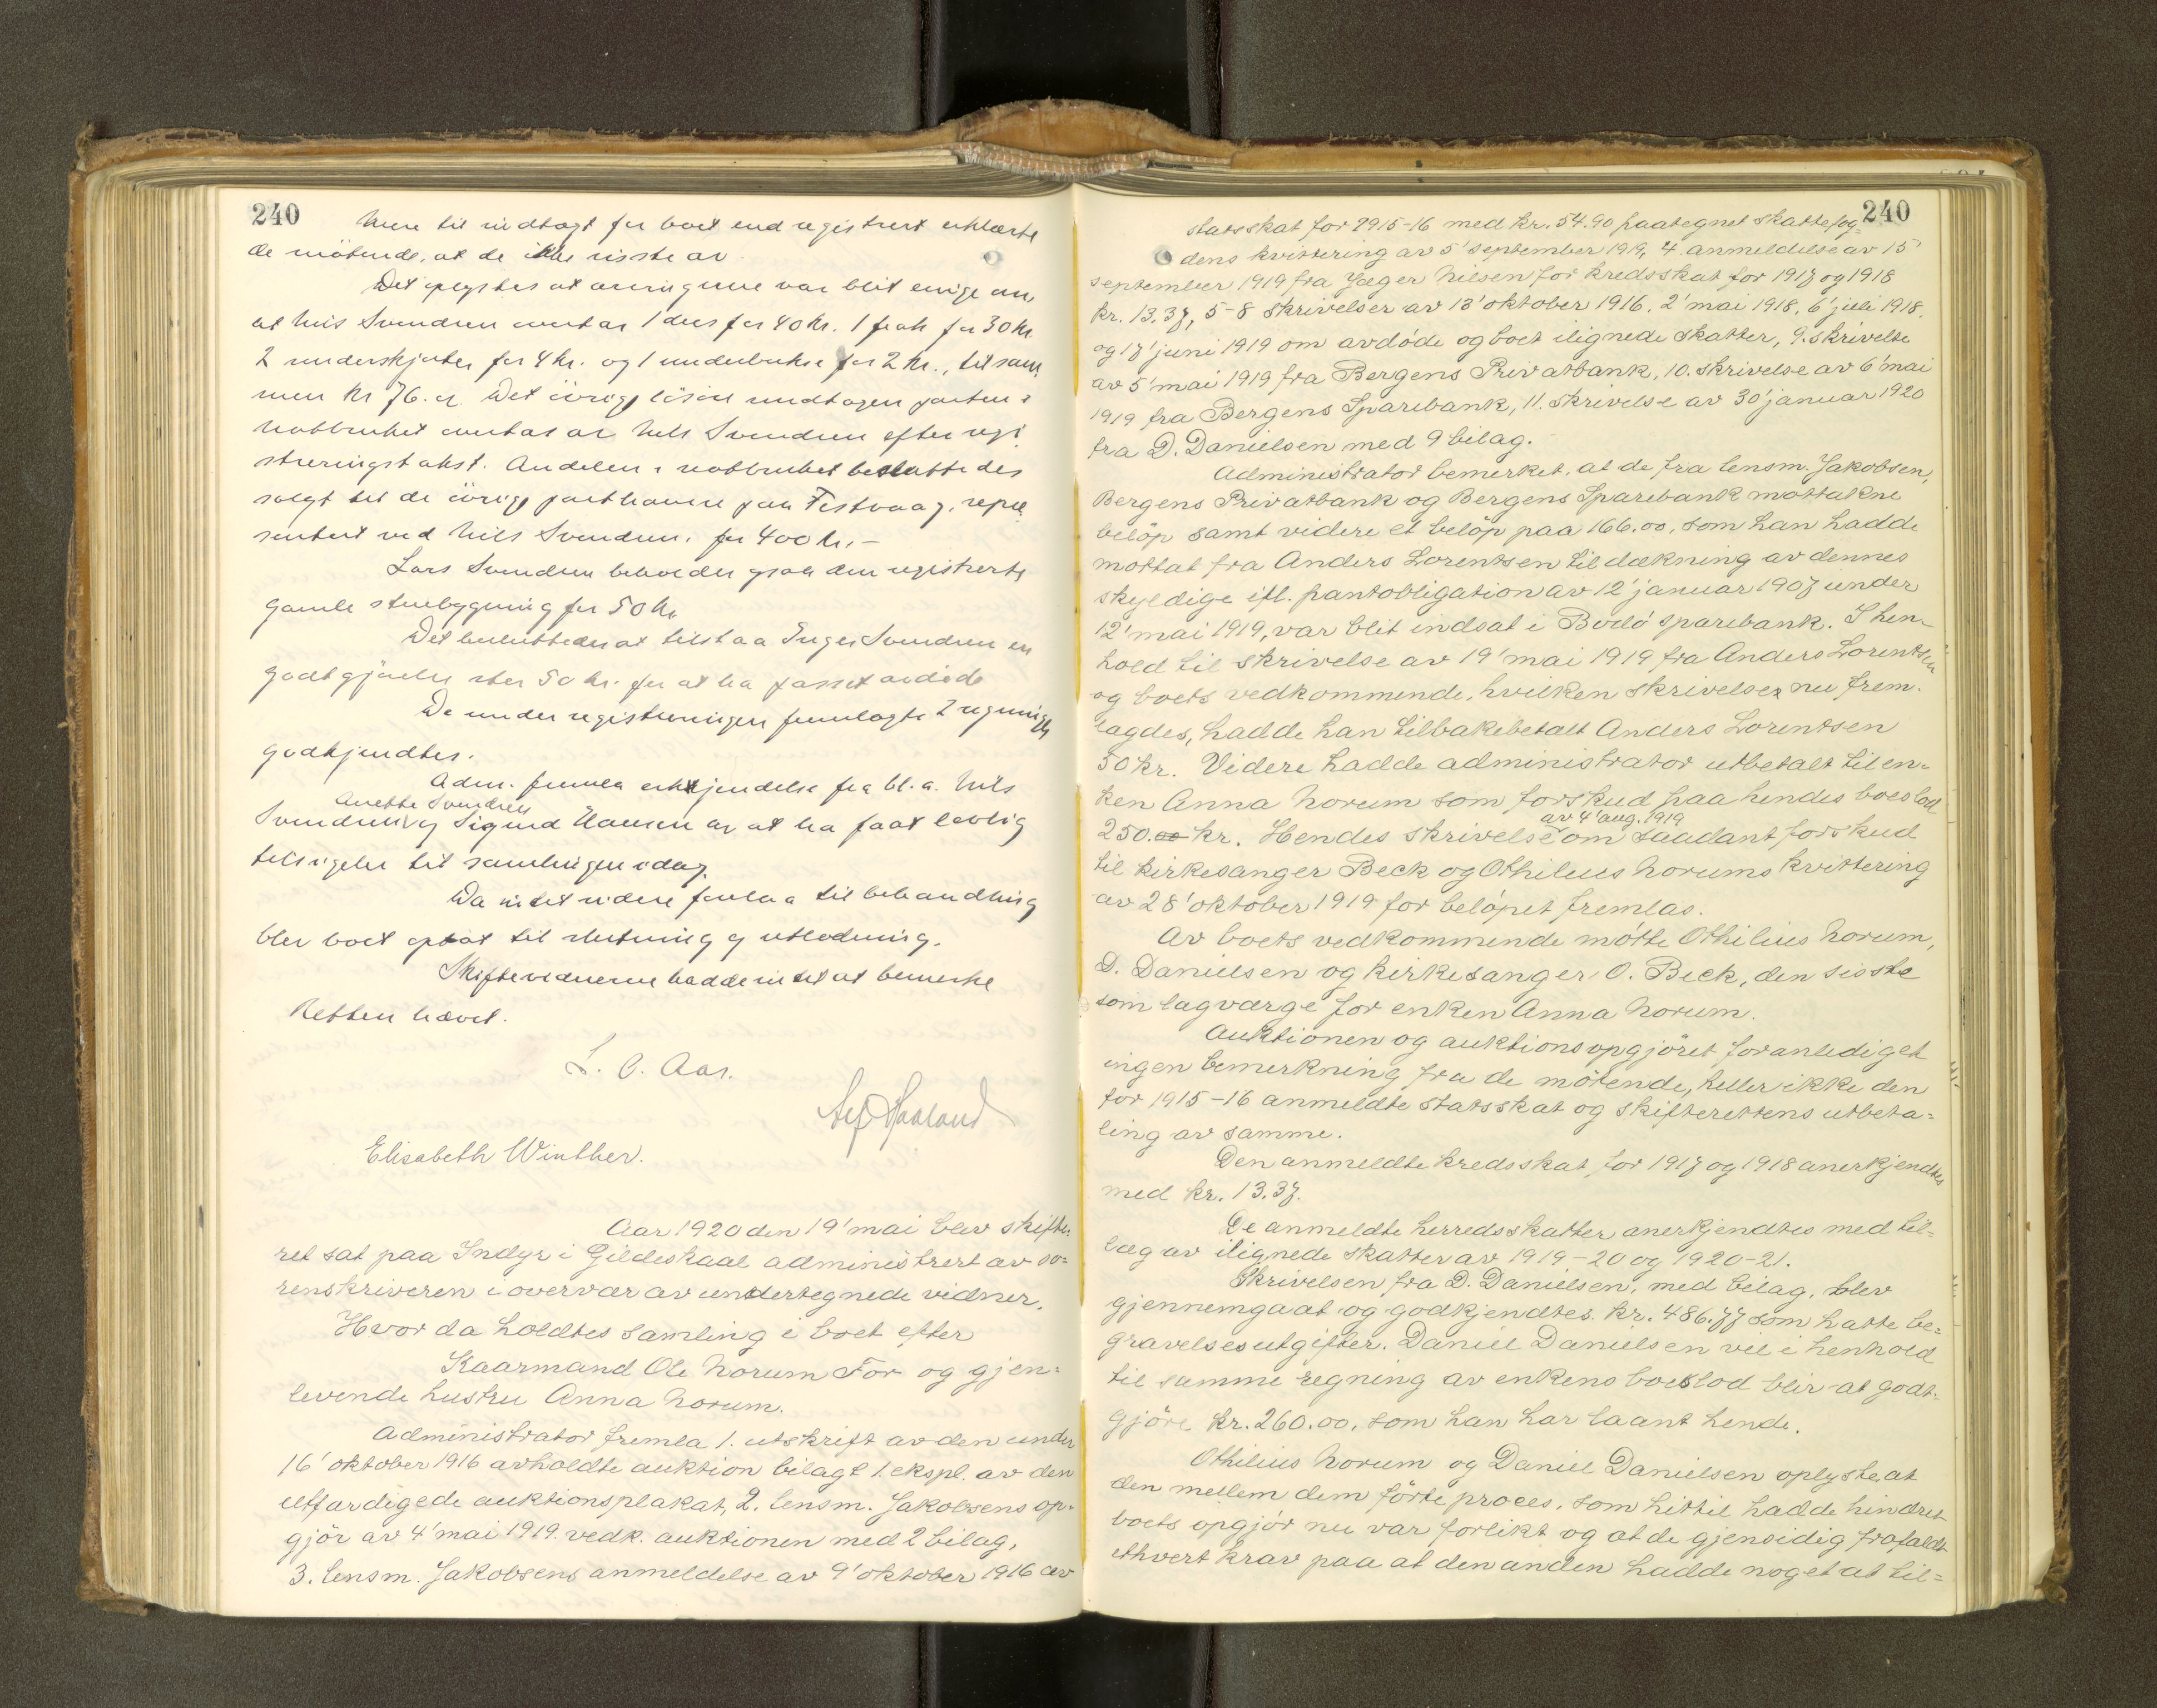 240
Mere til indtægt for boet end registrert erklærte
de mötende, at de ikke visste av.
Det oplystes at arvingene var blit enige om,
at Nils Svendsen overtar 1 dres for 40 kr. 1 frak for 30 kr
2 underskjorter for 4 kr. og 1 underbukse for 2 kr., tilsam
men kr 76. Det övrige lösöre undtagen parten i
notbruket overtas av Nils Svendsen efter regi
streringstakst. Andelen i notbruket besluttedes
solgt til de övrige parthavere paa Festvaag, repræ
sentert ved Nils Svendsen, for 400 kr.-
Lars Svendsen beholder ogsaa den registrerte
gamle stuebygning for 50 kr.
Det besluttedes at tilstaa Inger Svendsen en
godtgjörelse stor 50 kr. for at ha passet avdöde
De under registreringen fremlagte 2 regninger
godkjendtes.
Adm. fremla erkjendelse fra bl.a. Nils
Anette Svendsen
Svendsen og Sigurd Hansen av at ha faat lovlig
tilsigelse til samlingen idag.
Da intet videre forelaa til behandling
blev boet optat til slutning og utlodning.
Skiftevidnerne hadde intet at bemerke
Retten hævet.
L. C. Aas.
Elisabeth Winther.
Aar 1920 den 19' mai blev skifte-
ret sat paa Indyr i Gildeskaal administrert av so=
renskriveren i overvær av undertegnede vidner,
Hvor da holdtes samling i boet efter
Kaarmand Ole Norum För og gjen=
levende hustru Anna Norum.
Administrator fremla 1. utskrift av den under
16' oktober 1916 avholdte auktion bilagt 1. ekspl. av den
utfærdigede auktionsplakat, 2. lensm. Jakobsens op-
gjör av 4' mai 1919. vedk. auktionen med 2 bilag,
3. lensm. Jakobsens anmeldelse av 9' oktober 1916 av
240
statsskat for 1915-16 med kr. 54.90 paategnet skattefog=
dens kvittering av 5' september 1919, 4. anmeldelse av 15'
september 1919 fra Jæger Nilsen for kredsskat for 1917 og 1918
kr. 13.37, 5-8 skrivelser av 13' oktober 1916, 2' mai 1918, 6' juli 1918,
og 17' juni 1919 om avdöde og boet ilignede skatter, 9. skrivelse
av 5' mai 1919 fra Bergens Privatbank, 10. skrivelse av 6' mai
1919 fra Bergens Sparebank, 11. skrivelse av 30' januar 1920
fra D. Danielsen med 9 bilag.
Administrator bemerket, at de fra lensm. Jakobsen,
Bergens Privatbank og Bergens Sparebank mottakne
belöp samt videre et belöp paa 166.00, som han hadde
mottat fra Anders Lorentsen til dækning av dennes
skyldige ifl. pantobligation av 12' januar 1907 under
12' mai 1919, var blit indsat i Bodö sparebank. I hen-
hold til skrivelse av 19' mai 1919 fra Anders Lorentsen
og boets vedkommende, hvilken skrivelse nu frem-
lagdes, hadde han tilbakebetalt Anders Lorentsen
50 kr. Videre hadde administrator utbetalt til en-
ken Anna Norum som forskud paa hendes boeslod
av 4' aug. 1919
250.00 kr. Hendes skrivelse om saadant forskud
til kirkesanger Beck og Othilius Norums kvittering
av 28' oktober 1919 for belöpet fremlas.
Av boets vedkommende mötte Othilius Norum,
D. Danielsen og kirkesanger O. Beck, den sisste
som lagværge for enken Anna Norum.
Auktionen og auktionsopgjöret foranlediget
ingen bemerkning fra de mötende, heller ikke den
for 1915-16 anmeldte statsskat og skifterettens utbeta=
ling av samme.
Den anmeldte kredsskat for 1917 og 1918 anerkjendtes
med kr. 13.37.
De anmeldte herredsskatter anerkjendtes med til=
læg av ilignede skatter av 1919-20 og 1920-21.
Skrivelsen fra D. Danielsen, med bilag, blev
gjennemgaat og godkjendtes. kr. 486.77 som hatte be=
gravelsesutgifter. Daniel Danielsen vil i henhold
til samme regning av enkens boeslod blir at godt-
gjöre kr. 260.00, som han har laant hende.
Othilius Norum og Daniel Danielsen oplyste, at
den mellem dem förte proces, som hittil hadde hindret
boets opgjör nu var forlikt og at de gjensidig frafaldt
ethvert krav paa at den anden hadde noget at til=